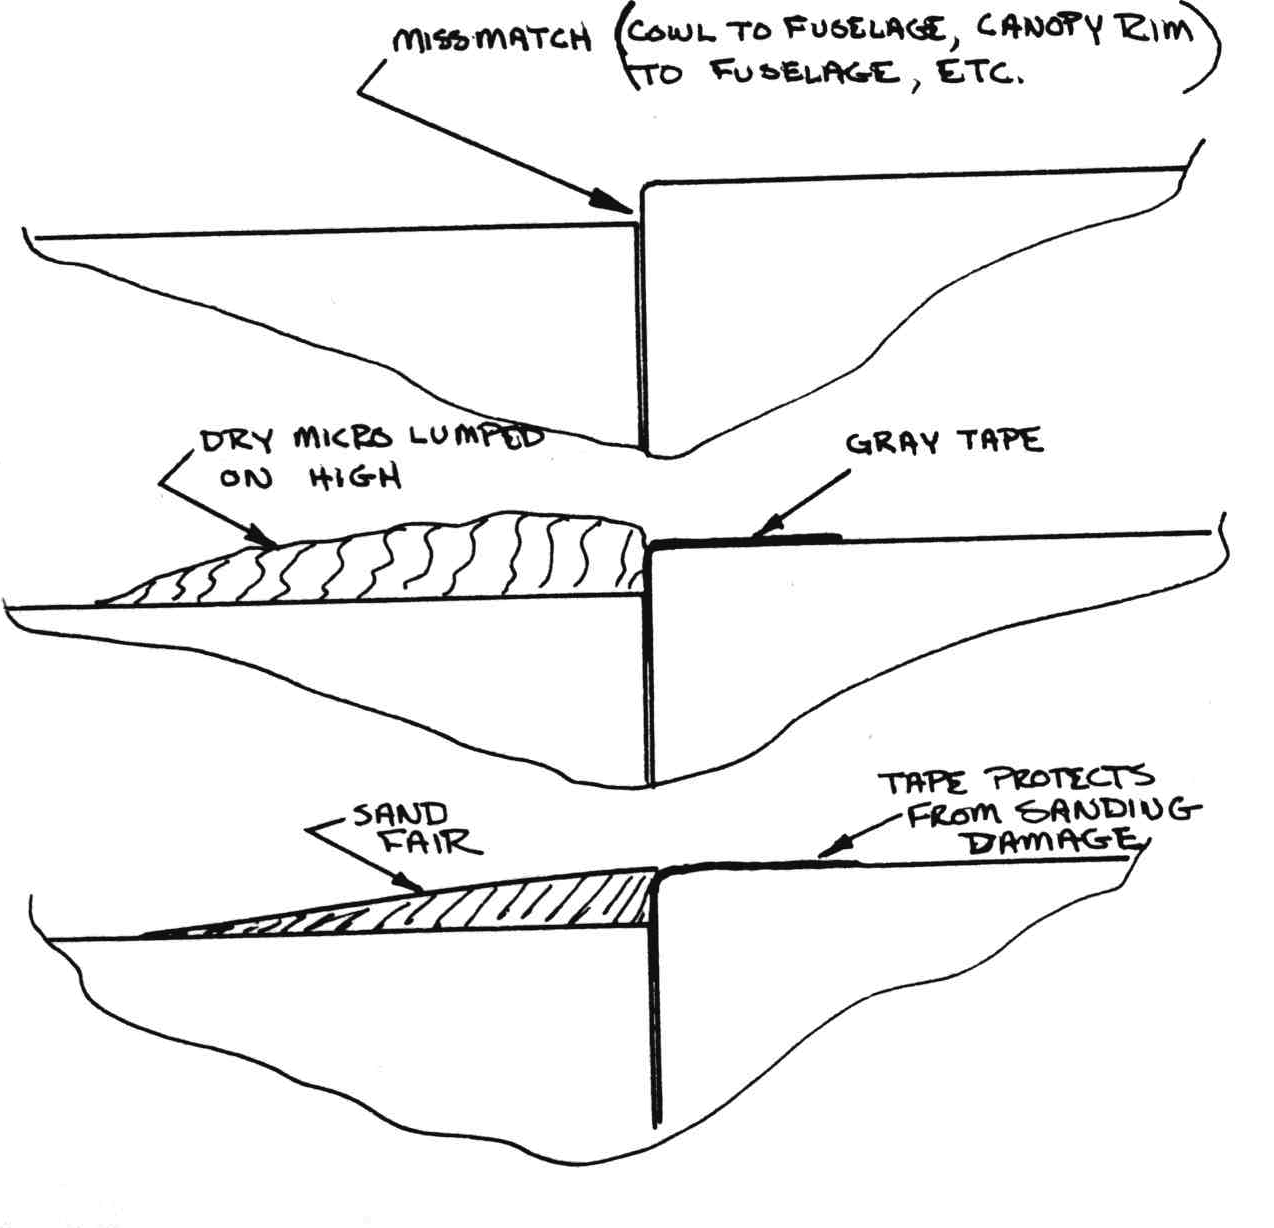 MISSMATCH (COWL TO FUSELAGE, CANOPY RIM
TO FUSELAGE, ETC.)
DRY MICRO LUMPED
ON HIGH
GRAY TAPE
SAND
FAIR
TAPE PROTECTS
FROM SANDING
DAMAGE